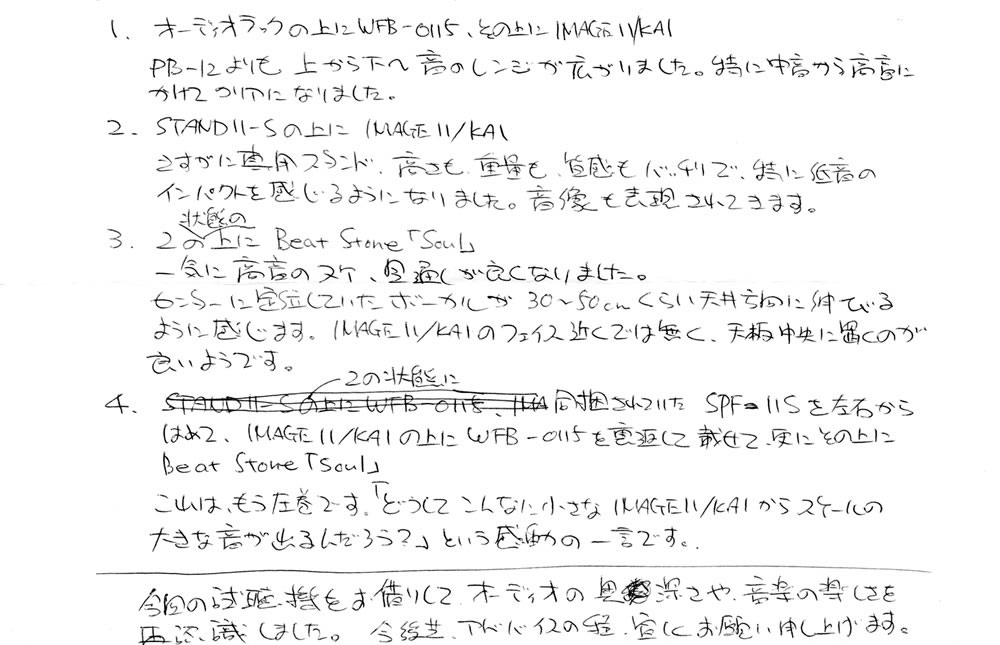 1. オーディオラックの上にWFB-0115、その上にIMAGE11/KAI
PB-12よりも、上から下へ音のレンジが広がりました。特に中音から高音に
かけてクリアになりました。
2. STAND11-Sの上に IMAGE11/KAI
さすがに専用スタンド、高さも、重量も、質感もバッチリで、特に低音の
インパクトを感じるようになりました。音像も表現されてきます。
3. 2の状態の上に Beat Stone「Soul」
一気に高音のヌケ、見通しが良くなりました。
センターに定位していたボーカルが 30~50cmくらい天井方向に伸びる
ように感じます。IMAGE11/KAIのフェイス近くでは無く、天板中央に置くのが
良いようです。
4. 2の状態に同梱されていた SPF-11Sを左右から
はめて、IMAGE11/KAIの上にWFB-0115を裏返して載せて、更にその上に
Beat Stone「Soul」
これは、もう圧巻です。「どうしてこんなに小さなIMAGE11/KAIからスケールの
大きな音が出るんだろう?」という感動の一言です。
今回の試聴機をお借りして、オーディオの奥深さや、音楽の楽しさを
再認識しました。 今後共、アドバイスの程、宜しくお願い申し上げます。